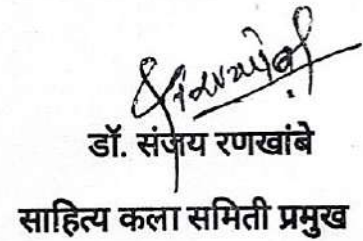 डॉ. संजय रणखांबे
साहित्य कला समिती प्रमुख